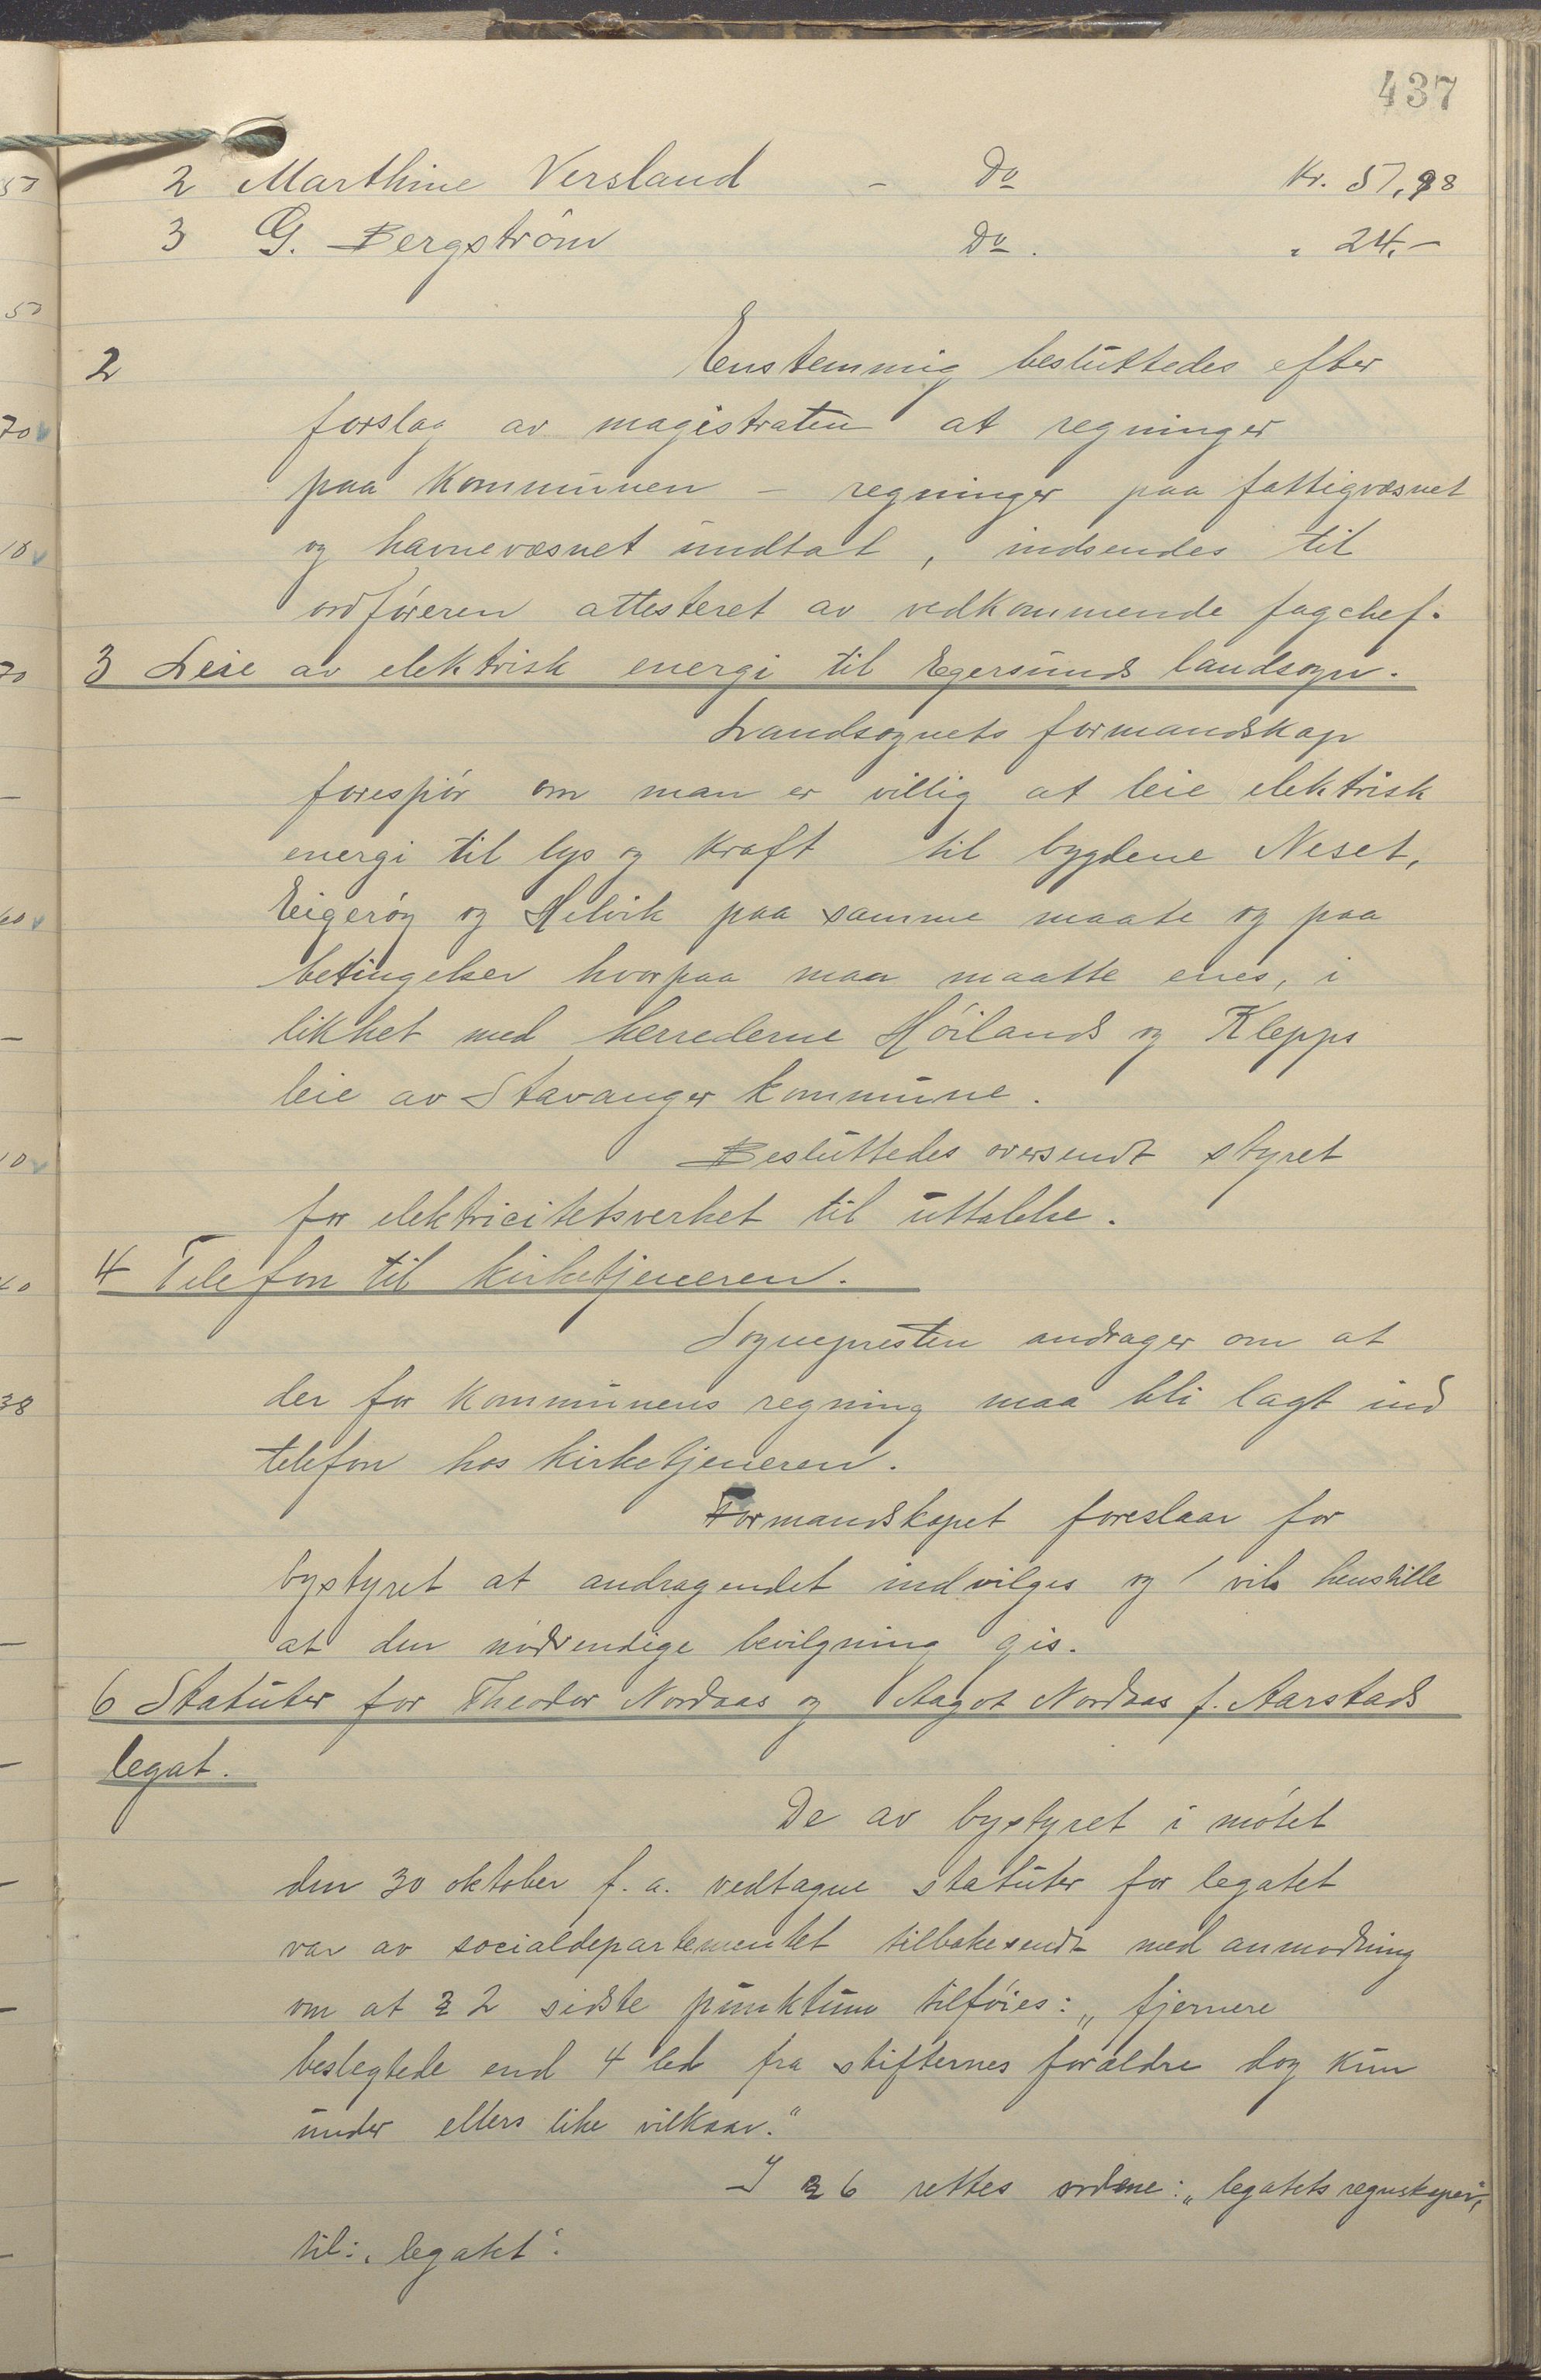 437
2 Marthine Versland - Do Kr. 57,98
3 G. Bergström Do. " 24.-
2 Enstemmig besluttedes efter
forslag av magistraten at regninger
paa kommunen - regninger paa fattigvæsnet
og havnevæsnet undtat, indsendes til
ordföreren attesteret av vedkommende fagchef.
3 Leie av elektrisk energi til Egersunds landsogn.
Landsognets formandskap
forespör om man er villig at leie elektrisk
energi til lys og kraft til bygdene Neset,
Eigeröy og Helvik paa samme maate og paa
betingelser hvorpaa man maatte enes, i
likhet med herrederne Höilands og Klepps
leie av Stavanger kommune.
Besluttedes oversendt styret
for elektricitetsverket til uttalelse.
4 Telefon til kirketjeneren.
Sognepresten andrager om at
der for kommunens regning maa bli lagt ind
telefon hos kirketjeneren.
Formandskapet foreslaar for
bystyret at andragendet indvilges og vil henstille
at den nödvendige bevilgning gis.
6 Statuter for Theodor Nordaas og Aagot Nordaas f. Aarstads
legat.
De av bystyret i mötet
den 30 oktober f. a. vedtagne statuter for legatet
var av socialdepartementet tilbakesendt med anmodning
om at § 2 sidste punktum tilföies: „fjernere
beslegtede end 4 led fra stifternes forældre dog kun
under ellers like vilkaar."
I § 6 rettes ordene: „legatets regnskaper",
til: „legatet".